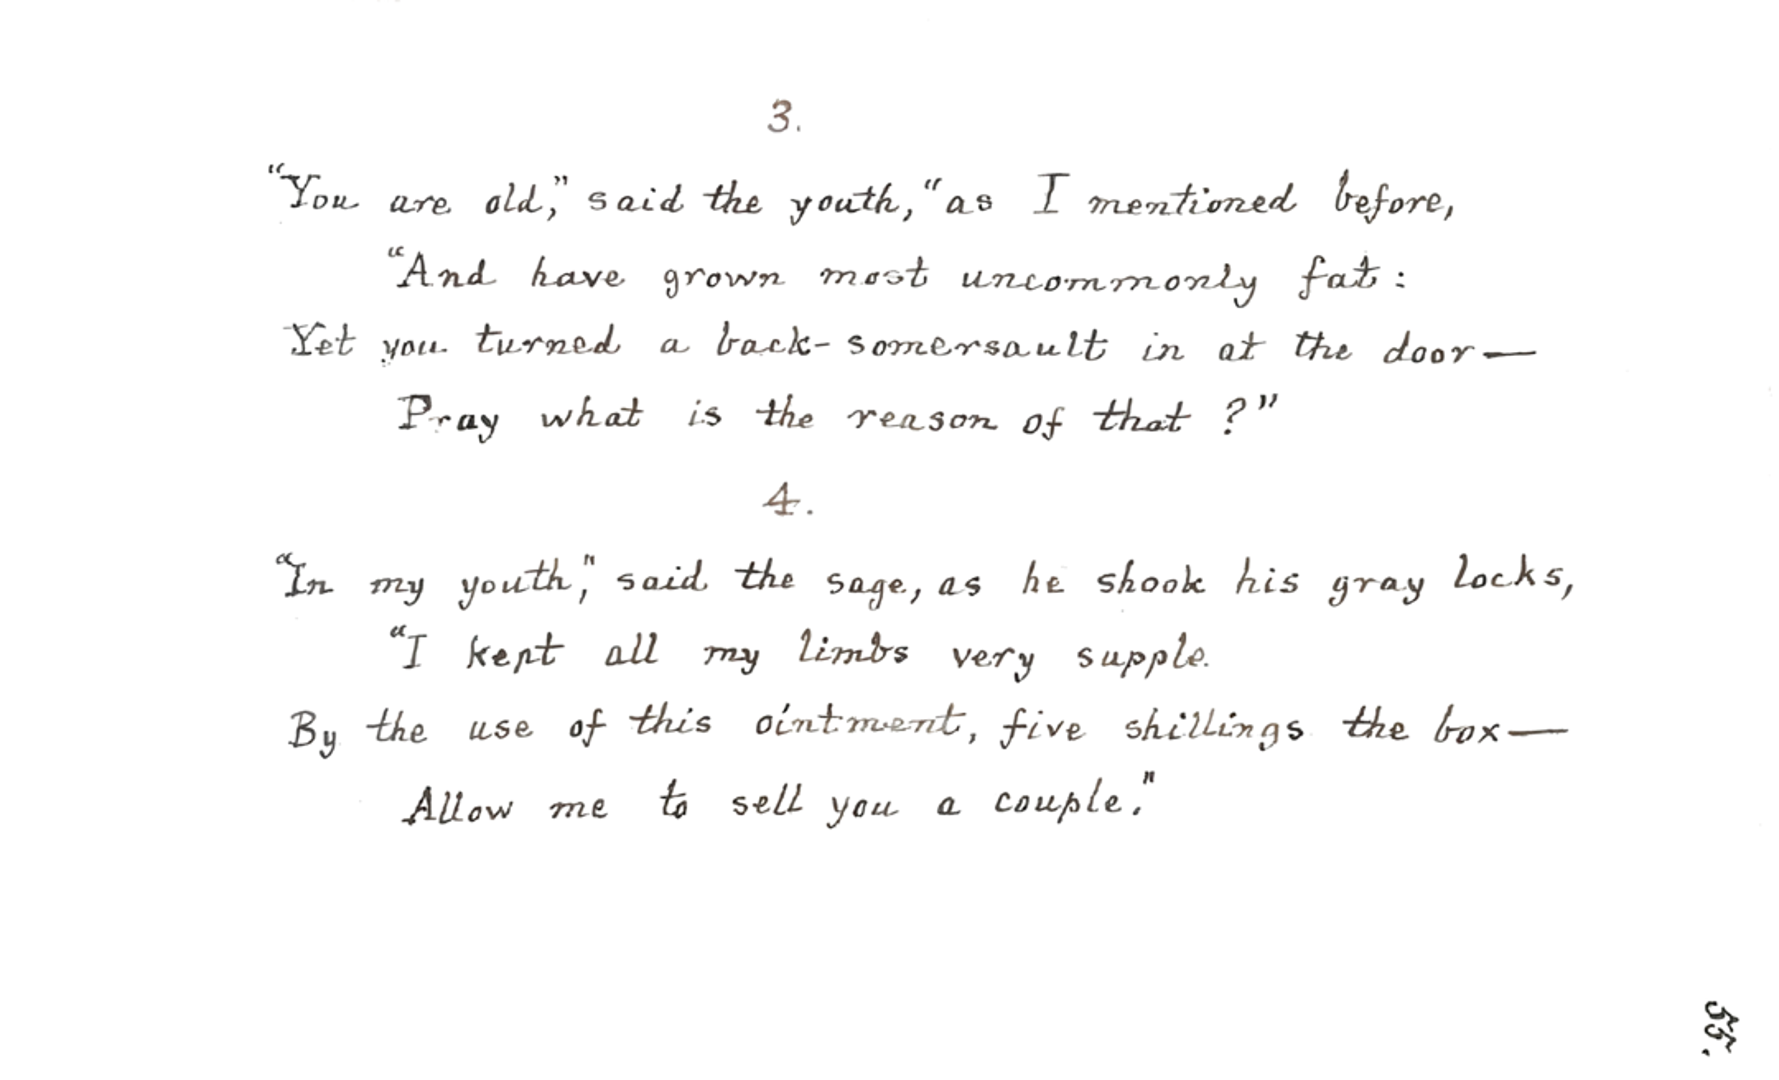 3.
"You are old," said the youth, "as I mentioned before,
"And have grown most uncommonly fat:
Yet you turned a back-somersault in at the door—
Pray what is the reason of that?"
4.
"In my youth," said the sage, as he shook his gray locks,
"I kept all my limbs very supple.
By the use of this ointment, five shillings the box—
Allow me to sell you a couple."
55.